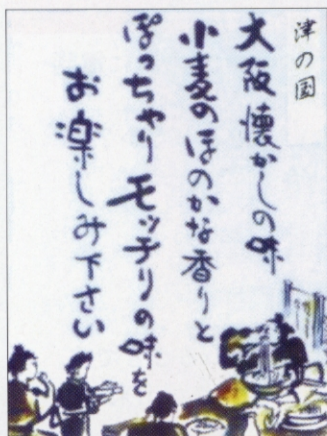 津の国
大阪懐かしの味
小麦のほのかな香りと
ぽっちゃりモッチリの味を
お楽しみ下さい